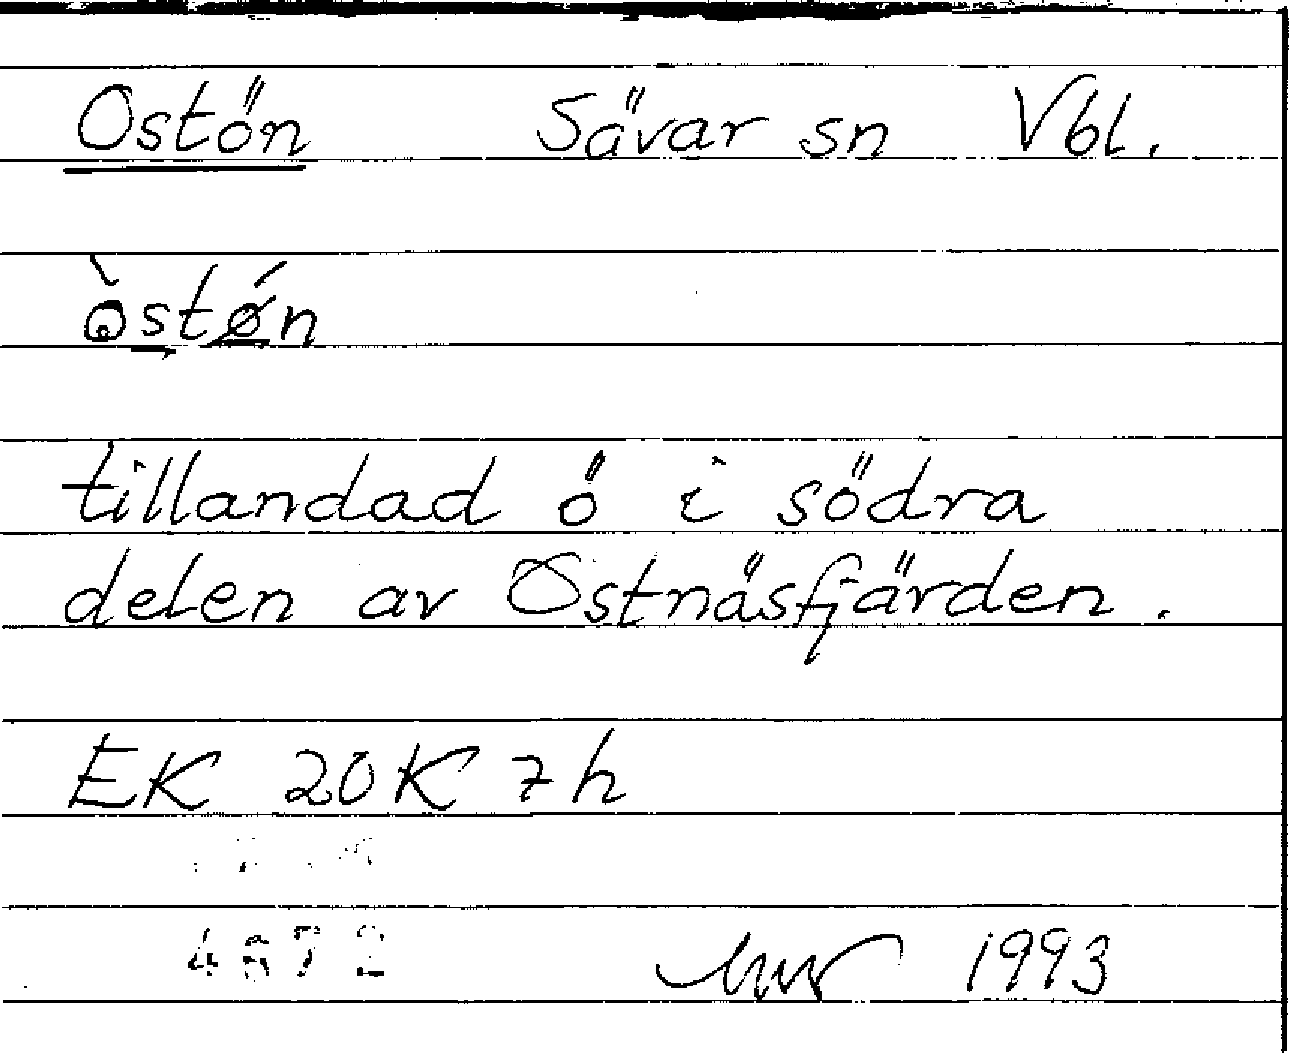 Ostön Sävar sn Vbl.
òstǿn
tillandad ö i södra
delen av Ostnäsfjärden.
EK 20K 7h
4672 1993